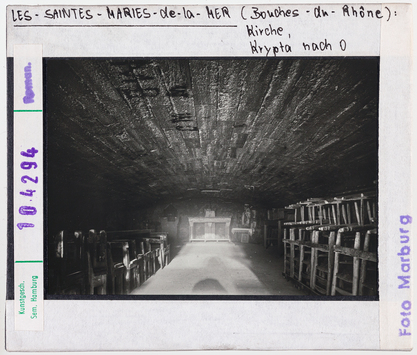 LES-SAINTES-MARIES-de-la-MER (Bouches-du-Rhône):
Kirche,
Krypta nach O
Roman.
10.4294
Kunstgesch.
Sem. Hamburg
Foto Marburg